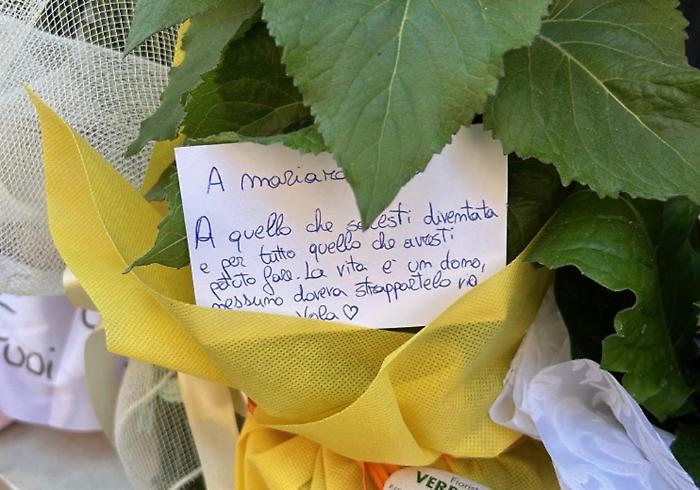 A
A quello che saresti diventata
e per tutto quello che avresti
potuto fare. La vita è un dono,
nessuno doveva strappartelo via
Vola ♡
TUOI
Fiorista
VERD